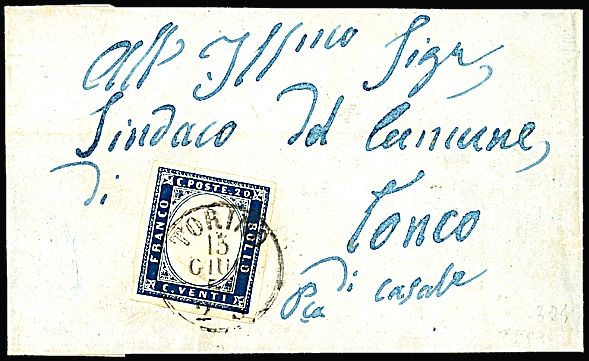 All Illmo Sigr,
Sindaco del Comune,
di
Tonco
di
Pcia casale
C. POSTE. 20
FRANCO
BOLLO
C. VENTI
TORINO
13
GIU
2 S